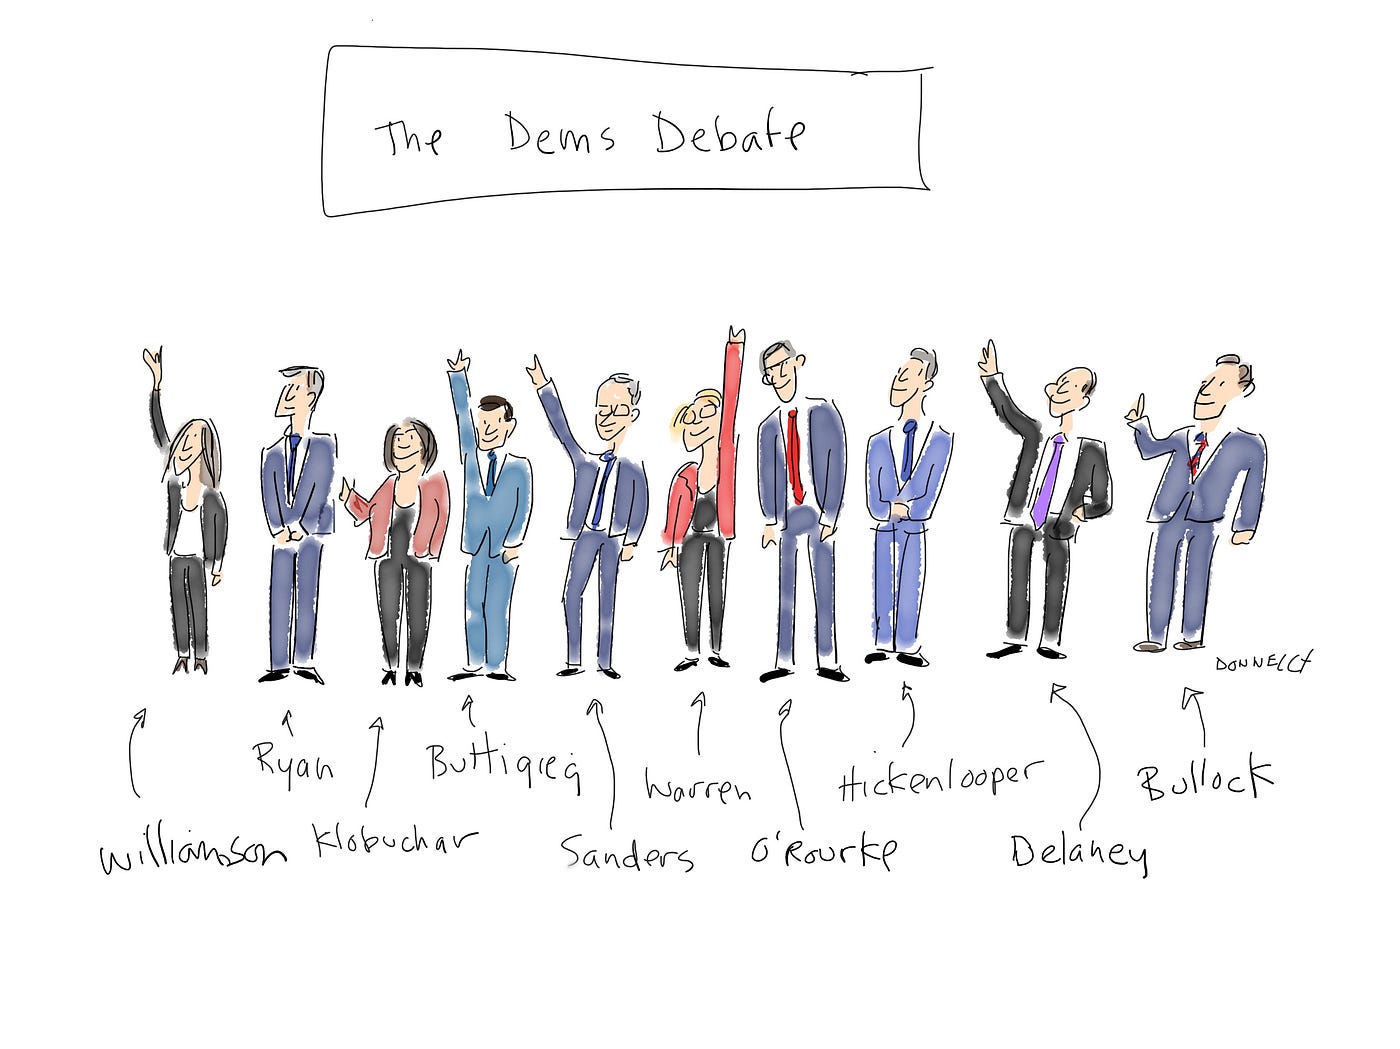 The Dems Debate
DONNELLY
Ryan
Buttigieg
Warren
Hickenlooper
Bullock
Williamson
Klobuchar
Sanders
O'Rourke
Delaney